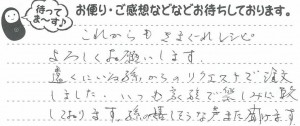 待ってま〜す♪
お便り・ご感想などなどお待ちしております。
これからもきまぐれレシピ
よろしくお願いします。
遠くにいる孫からのリクエストで注文
しました。いつも家族で楽しみに
しております。孫の嬉しそうな声また聞けます